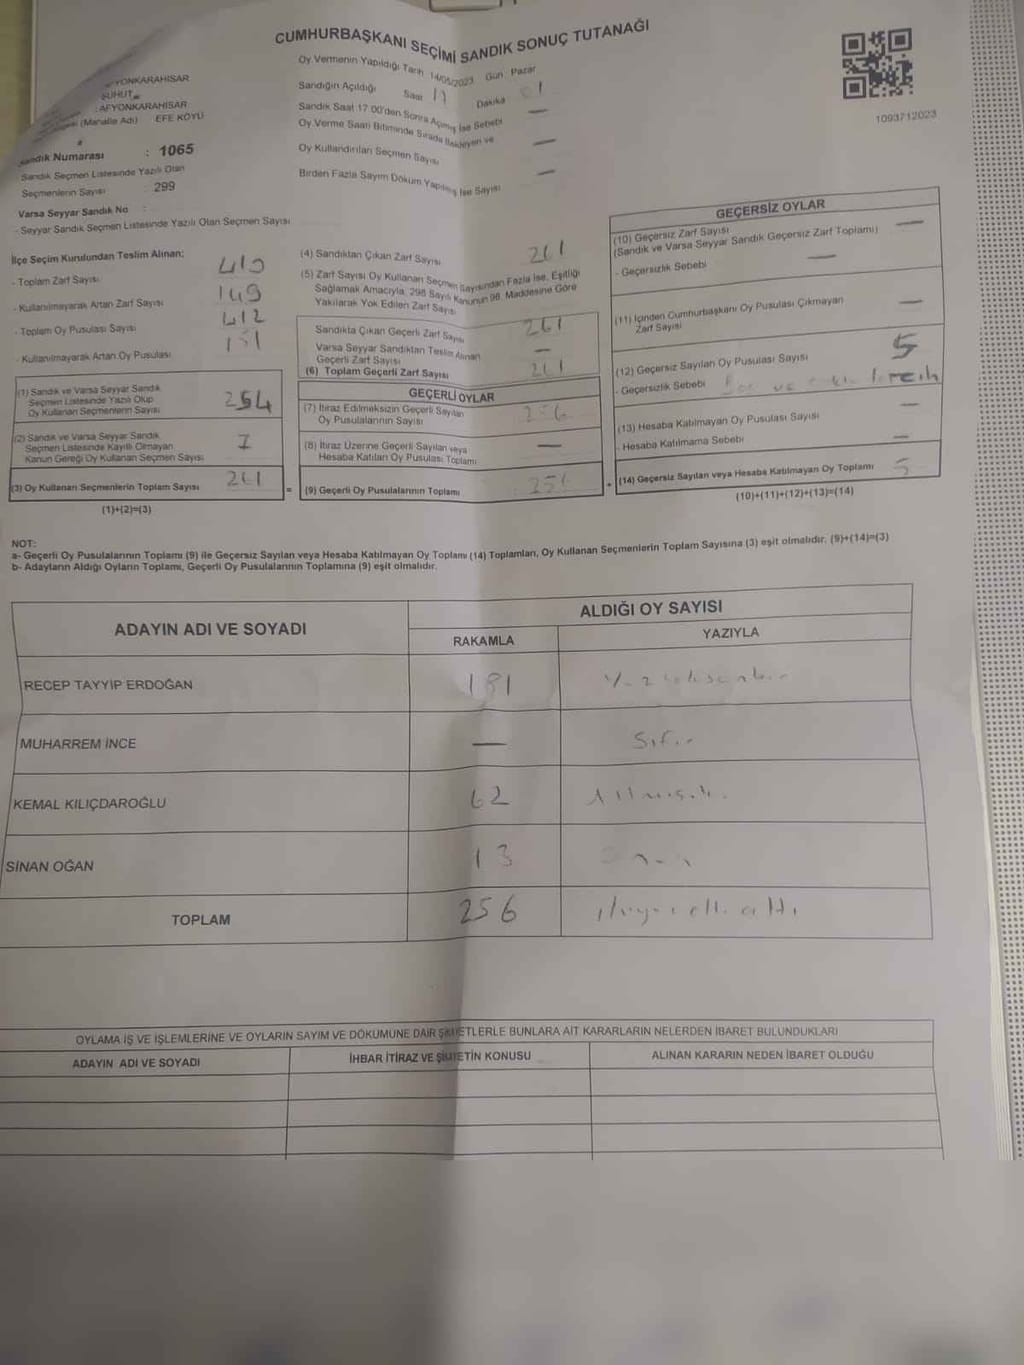 CUMHURBAŞKANI SEÇİMİ SANDIK SONUÇ TUTANAĞI
AFYONKARAHİSAR
ŞUHUT
: AFYONKARAHİSAR
(Mahalle Adı) EFE KÖYÜ
Sandık Numarası : 1065
Sandık Seçmen Listesinde Yazılı Olan
Seçmenlerin Sayısı : 299
Varsa Seyyar Sandık No :
- Seyyar Sandık Seçmen Listesinde Yazılı Olan Seçmen Sayısı
Oy Vermenin Yapıldığı Tarih 14/05/2023 Gün Pazar
Sandığın Açıldığı Saat 17 Dakika 01
Sandık Saat 17.00'den Sonra Açılmış İse Sebebi —
Oy Verme Saati Bitiminde Sırada Bekleyen ve
Oy Kullandırılan Seçmen Sayısı —
Birden Fazla Sayım Döküm Yapılmış İse Sayısı —
1093712023
İlçe Seçim Kurulundan Teslim Alınan:
- Toplam Zarf Sayısı 410
- Kullanılmayarak Artan Zarf Sayısı 149
- Toplam Oy Pusulası Sayısı 412
- Kullanılmayarak Artan Oy Pusulası 151
(1) Sandık ve Varsa Seyyar Sandık
Seçmen Listesinde Yazılı Olup
Oy Kullanan Seçmenlerin Sayısı 254
(2) Sandık ve Varsa Seyyar Sandık
Seçmen Listesinde Kayıtlı Olmayan
Kanun Gereği Oy Kullanan Seçmen Sayısı 7
(3) Oy Kullanan Seçmenlerin Toplam Sayısı 261 =
(1)+(2)=(3)
(4) Sandıktan Çıkan Zarf Sayısı 261
(5) Zarf Sayısı Oy Kullanan Seçmen Sayısından Fazla İse, Eşitliği
Sağlamak Amacıyla, 298 Sayılı Kanunun 98. Maddesine Göre
Yakılarak Yok Edilen Zarf Sayısı
Sandıkta Çıkan Geçerli Zarf Sayısı 261
Varsa Seyyar Sandıktan Teslim Alınan
Geçerli Zarf Sayısı —
(6) Toplam Geçerli Zarf Sayısı 261
GEÇERLİ OYLAR
(7) İtiraz Edilmeksizin Geçerli Sayılan
Oy Pusulalarının Sayısı 256
(8) İtiraz Üzerine Geçerli Sayılan veya
Hesaba Katılan Oy Pusulası Toplamı —
(9) Geçerli Oy Pusulalarının Toplamı 256 +
GEÇERSİZ OYLAR
(10) Geçersiz Zarf Sayısı
(Sandık ve Varsa Seyyar Sandık Geçersiz Zarf Toplamı) —
- Geçersizlik Sebebi —
(11) İçinden Cumhurbaşkanı Oy Pusulası Çıkmayan
Zarf Sayısı —
(12) Geçersiz Sayılan Oy Pusulası Sayısı 5
- Geçersizlik Sebebi ve tercih
(13) Hesaba Katılmayan Oy Pusulası Sayısı —
- Hesaba Katılmama Sebebi —
(14) Geçersiz Sayılan veya Hesaba Katılmayan Oy Toplamı 5
(10)+(11)+(12)+(13)=(14)
NOT:
a- Geçerli Oy Pusulalarının Toplamı (9) ile Geçersiz Sayılan veya Hesaba Katılmayan Oy Toplamı (14) Toplamları, Oy Kullanan Seçmenlerin Toplam Sayısına (3) eşit olmalıdır. (9)+(14)=(3)
b- Adayların Aldığı Oyların Toplamı, Geçerli Oy Pusulalarının Toplamına (9) eşit olmalıdır.
ADAYIN ADI VE SOYADI
ALDIĞI OY SAYISI
RAKAMLA YAZIYLA
RECEP TAYYİP ERDOĞAN 181
MUHARREM İNCE — Sıfır
KEMAL KILIÇDAROĞLU 62
SİNAN OĞAN 13
TOPLAM 256 ikiyüzelli altı
OYLAMA İŞ VE İŞLEMLERİNE VE OYLARIN SAYIM VE DÖKÜMÜNE DAİR ŞİKAYETLERLE BUNLARA AİT KARARLARIN NELERDEN İBARET BULUNDUKLARI
ADAYIN ADI VE SOYADI İHBAR İTİRAZ VE ŞİKAYETİN KONUSU ALINAN KARARIN NEDEN İBARET OLDUĞU